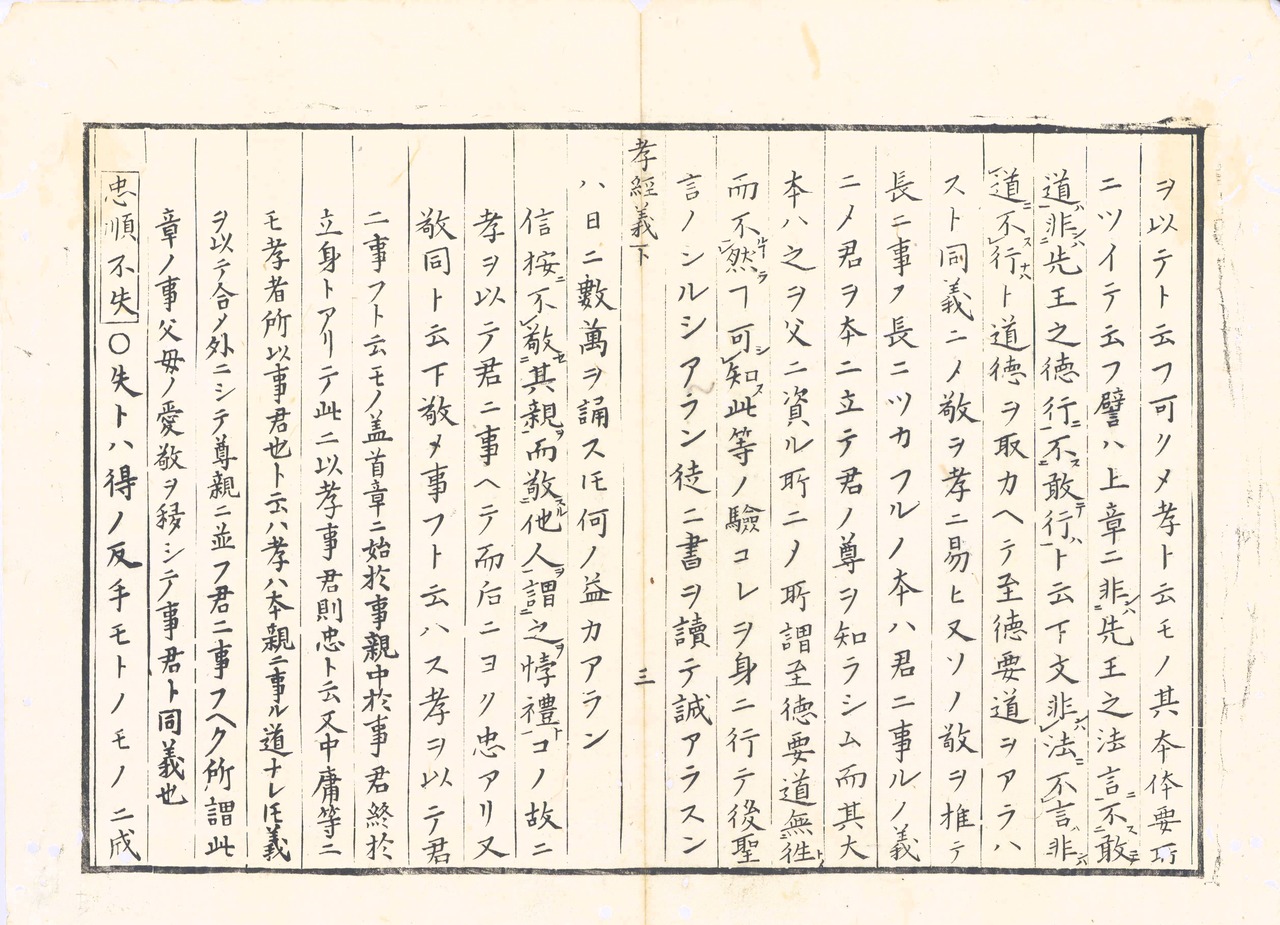 ヲ以テト云フ可リメ孝ト云モノ其本体要所
ニツイテ云フ譬ハ上章ニ非先王之法言不敢
道非先王之徳行不敢行ト云下文非法不言非
道不行ト道徳ヲ取カヘテ至徳要道ヲアラハ
スト同義ニメ敬ヲ孝ニ易ヒ又ソノ敬ヲ推テ
長ニ事ヲ長ニツカフルノ本ハ君ニ事ルノ義
ニメ君ヲ本ニ立テ君ノ尊ヲ知ラシム而其大
本ハ之ヲ父ニ資ル所ニメ所謂至徳要道無徃
而不然ヿ可知此等ノ驗コレヲ身ニ行テ後聖
言ノシルシアラン徒ニ書ヲ讀テ誠アラスン
孝經義下 三
ハ日ニ數萬ヲ誦スルトモ何ノ益カアラン
信按不敬其親而敬他人謂之悖禮コノ故ニ
孝ヲ以テ君ニ事ヘテ而后ニヨリ忠アリ又
敬同ト云下敬メ事フト云ハス孝ヲ以テ君
ニ事フト云モノ盖首章ニ始於事親中於事君終於
立身トアリテ此ニ以孝事君則忠ト云又中庸等ニ
モ孝者所以事君也ト云ハ孝ハ本親ニ事ル道ナレ𪜈義
ヲ以テ合ノ外ニシテ尊親ニ並フ君ニ事フヘク所謂此
章ノ事父母ノ愛敬ヲ移シテ事君ト同義也
忠順不失〇失トハ得ノ反手モトノモノニ成